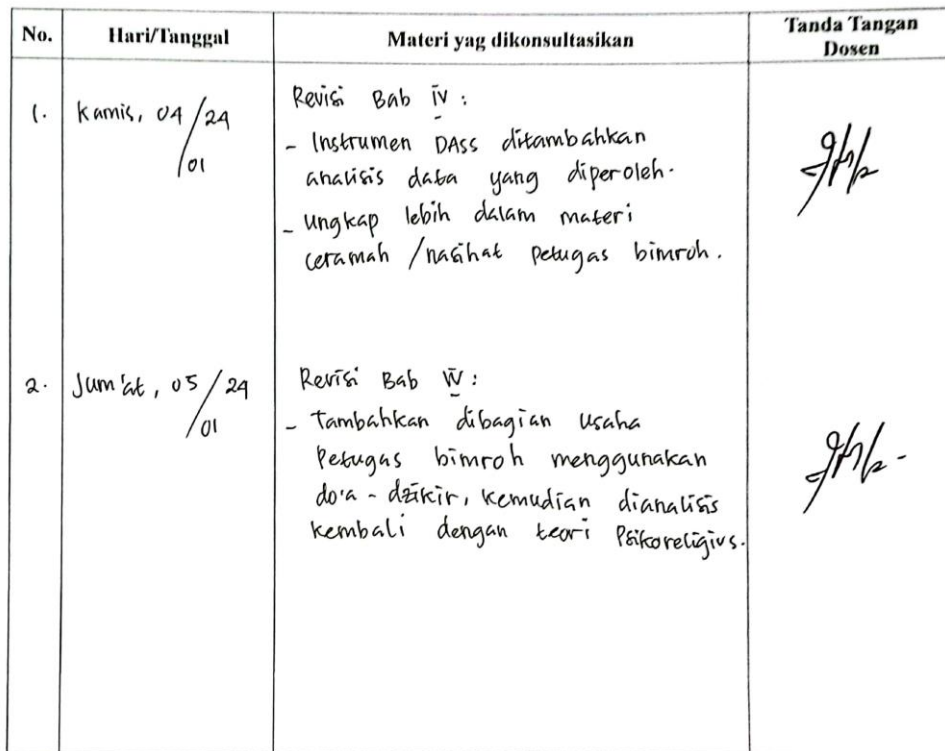 No. Hari/Tanggal Materi yag dikonsultasikan Tanda Tangan Dosen
1. Kamis, 04/24/01
Revisi Bab IV :
- Instrumen DASS ditambahkan
analisis data yang diperoleh.
- Ungkap lebih dalam materi
ceramah / nasihat petugas bimroh.
2. Jum'at, 05/24/01
Revisi Bab IV :
- Tambahkan dibagian usaha
Petugas bimroh menggunakan
do'a - dzikir, kemudian dianalisis
kembali dengan teori Psikoreligius.